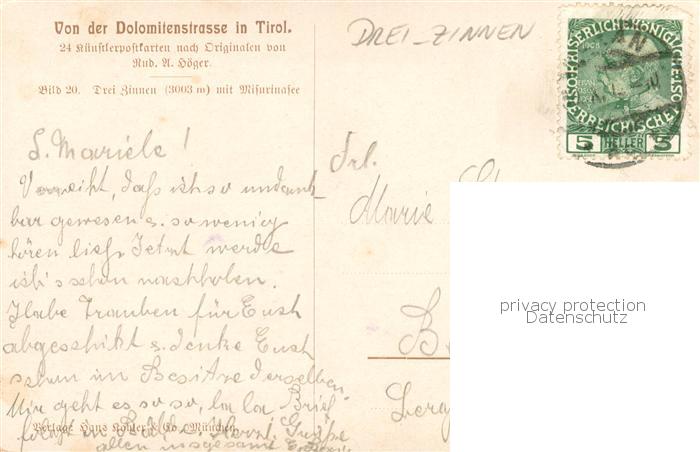 Von der Dolomitenstrasse in Tirol.
24 Künstlerpostkarten nach Originalen von
Rud. A. Höger.
Bild 20. Drei Zinnen (3003 m) mit Misurinasee
DREI-ZINNEN
KAISERLICHE KÖNIGLICHE
1908
ÖSTERREICHISCHE POST
5 HELLER 5
L. Mariele!
Verzeiht, daß ich so undank
bar gewesen u. so wenig
hören ließ. Jetzt werde
ich's schon nachholen.
Habe Trauben für Euch
abgeschikt u. denke Euch
schon im Besitze derselben.
Mir geht es so so, la la Brief
folgt in Bälde. Herzl. Grüße
allen insgesamt
Verlag Hans Köhler & Co., München.
Frl.
Marie
privacy protection
Datenschutz